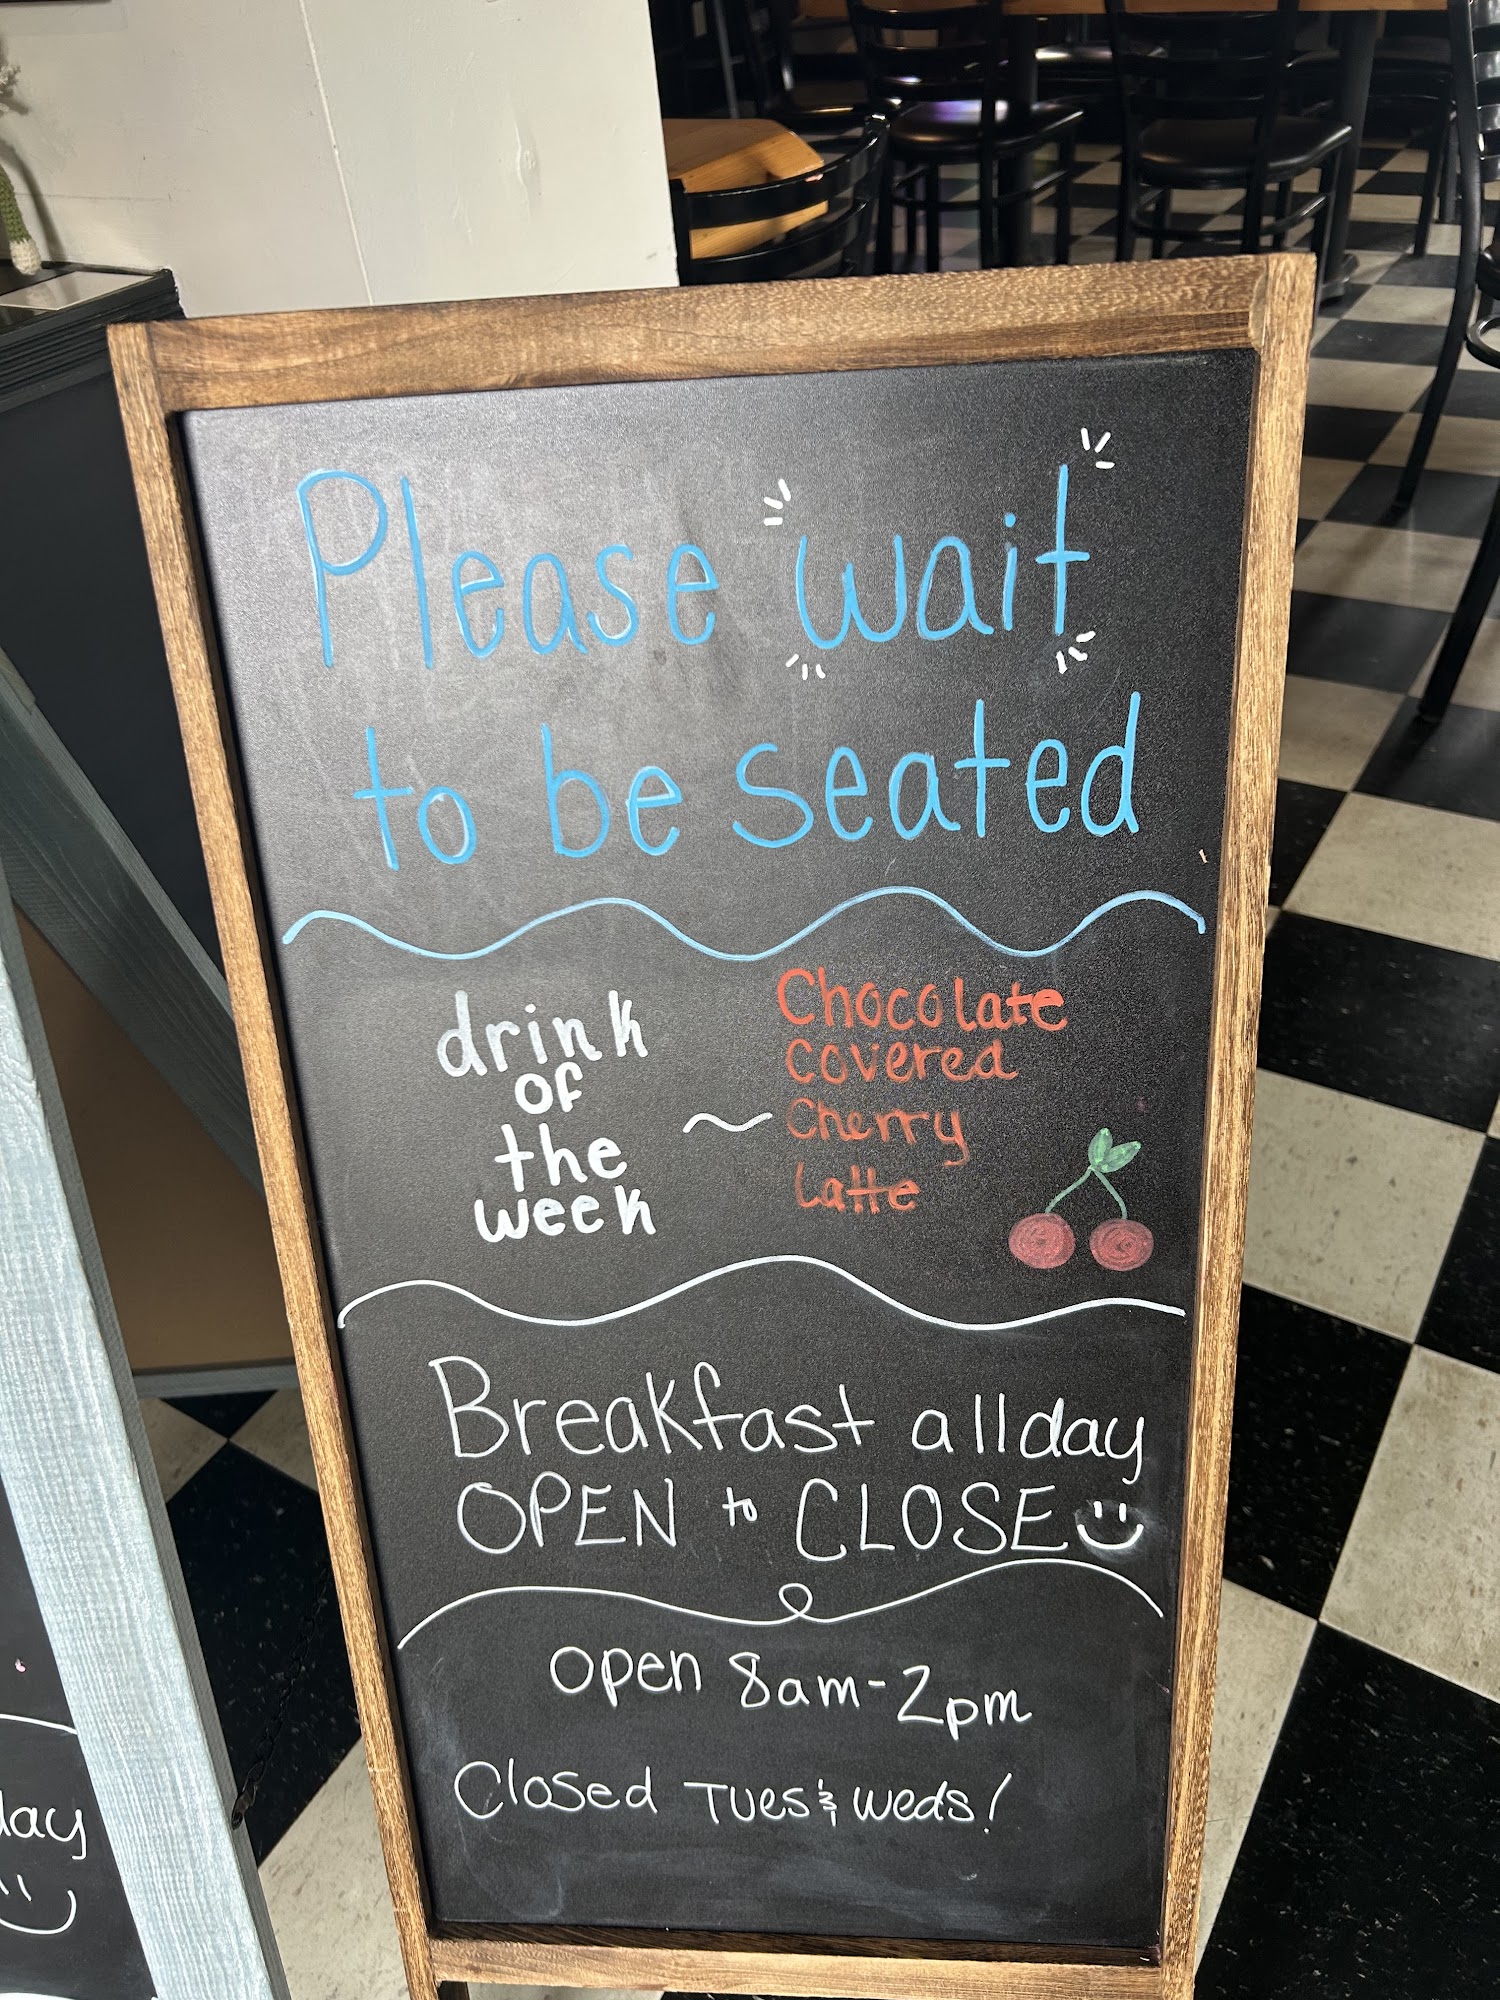 Please wait
to be seated
drink
of
the
week
~
Chocolate
covered
Cherry
Latte
Breakfast all day
OPEN to CLOSE
open 8am-2pm
Closed Tues & Weds!
day